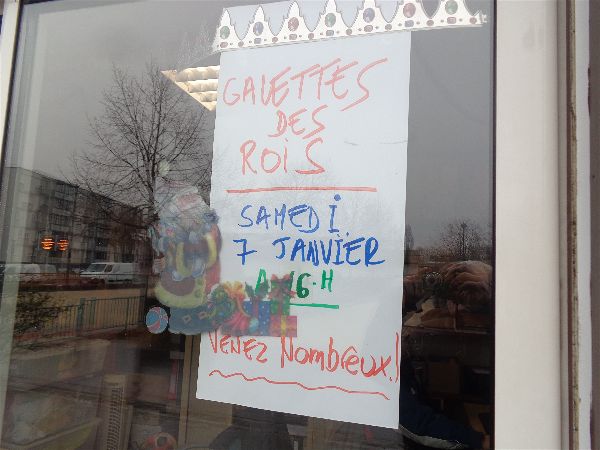 GALETTES
DES
ROIS
SAMEDI
7 JANVIER
A 16.H
VENEZ NOMBREUX.!